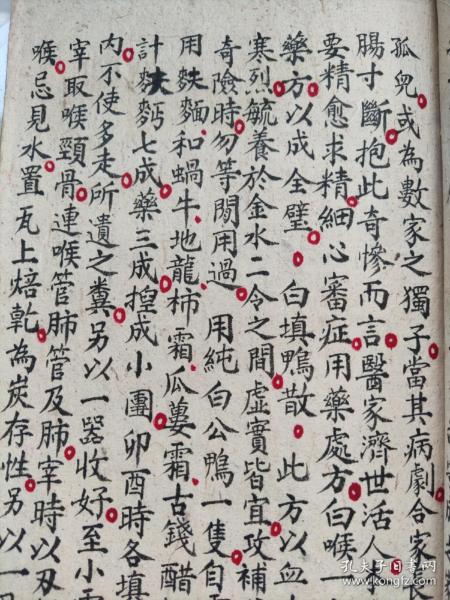 孤兒或為數家之獨子當其病劇合家
腸寸斷抱此奇慘而言醫家濟世活人
要精愈求精細心審症用藥處方白喉一
藥方以成全璧 白填鴨散 此方以血
寒烈毓養於金水二令之間虛實皆宜攻補
奇險時勿等閒用過 用純白公鴨一隻自
用麩麵和蝎牛地龍柿霜瓜蔞霜古錢醋
計麩麪七成藥三成揑成小團卯酉時各填
内不使多走所遺之糞另以一器收好至小
宰取喉頸骨連喉管肺管及肺宰時以刃
喉忌見水置瓦上焙乾為炭存性另以一
孔夫子旧书网